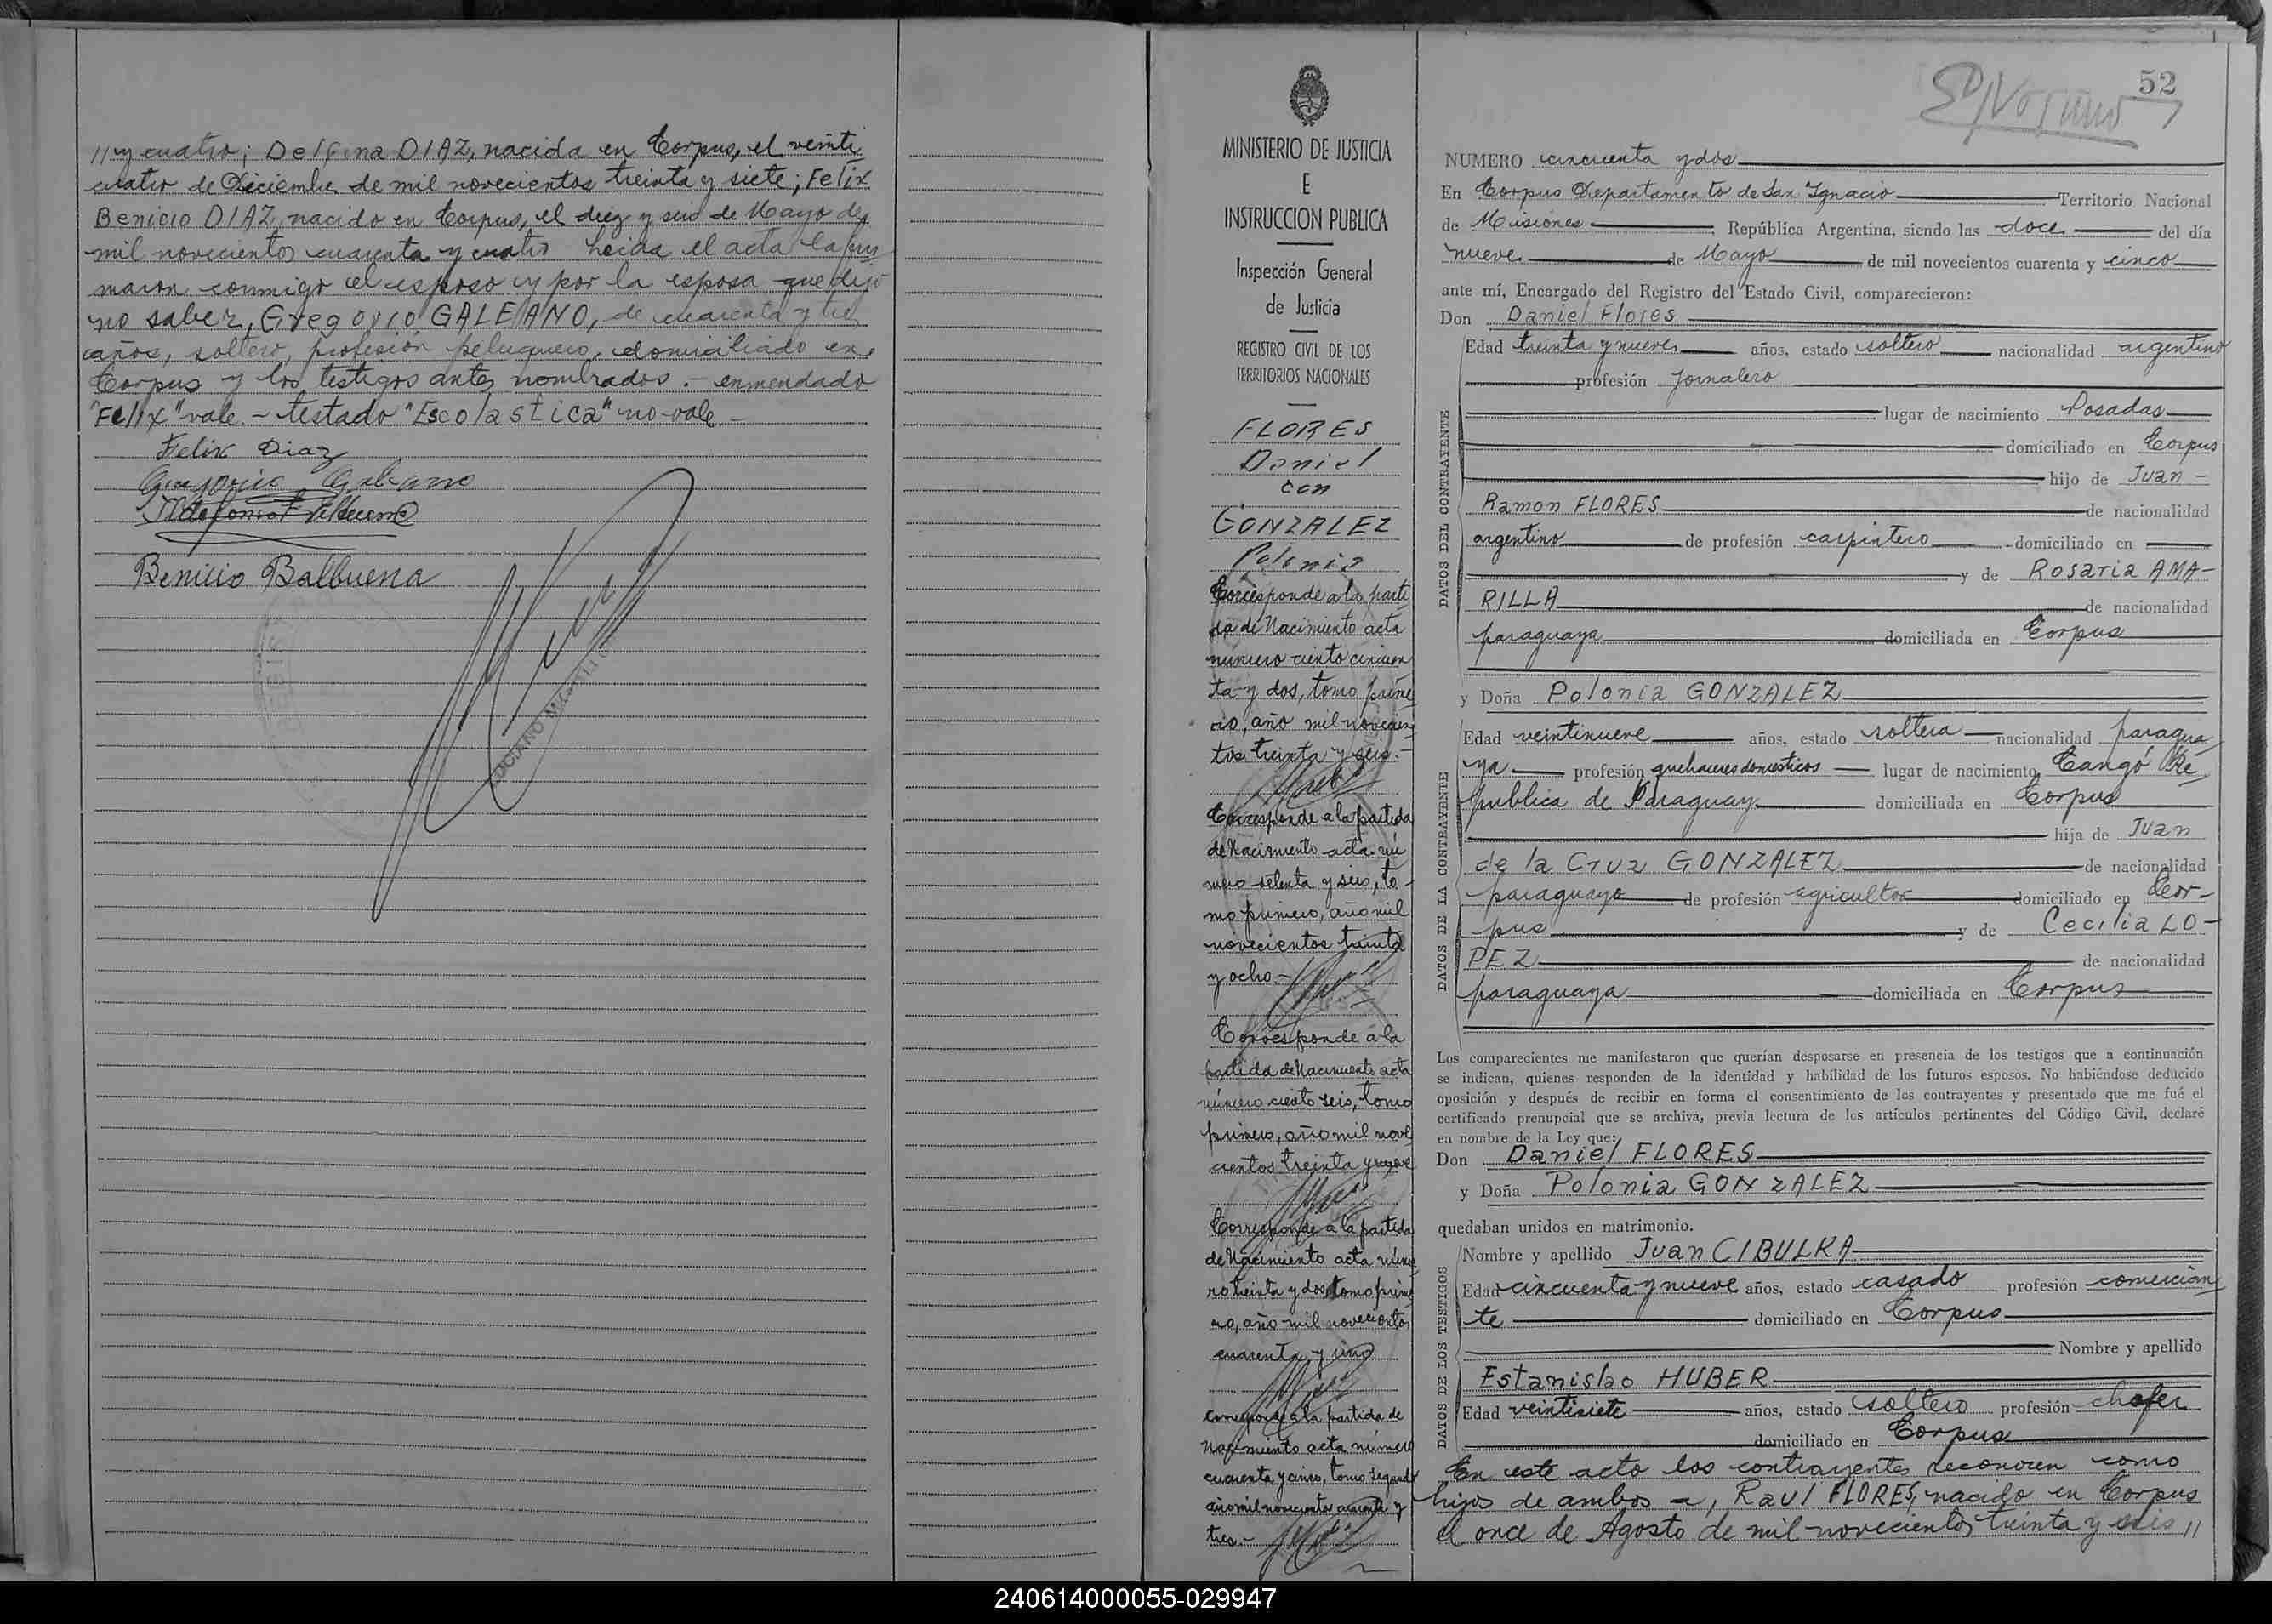 // y cuatro; Delfina DIAZ, nacida en Corpus, el veinti
cuatro de Diciembre de mil novecientos treinta y siete; Felix
Benicio DIAZ, nacido en Corpus, el diez y seis de Mayo de
mil novecientos cuarenta y cuatro Leida el acta la fir
maron conmigo el esposo y por la esposa que dijo
no saber, Gregorio GALEANO, de cuarenta y tres
años, soltero, profesión peluquero, domiciliado en
Corpus y los testigos antes nombrados.- enmendado
"Felix" vale.- testado "Escolastica" no vale.-
Felix Diaz
Gregorio Galeano
Benicio Balbuena
MINISTERIO DE JUSTICIA
E
INSTRUCCION PUBLICA
Inspección General
de Justicia
REGISTRO CIVIL DE LOS
TERRITORIOS NACIONALES
FLORES
Daniel
con
GONZALEZ
Polonia
Corresponde a la parti
da de Nacimiento acta
numero ciento cincuen
ta y dos, tomo prime
ro, año mil novecien
tos treinta y seis.-
Corresponde a la partida
de Nacimiento acta nú
mero setenta y seis, to-
mo primero, año mil
novecientos treinta
y ocho.-
Corresponde a la
partida de Nacimiento acta
número ciento seis, tomo
primero, año mil nove
cientos treinta y nueve
Corresponde a la partida
de Nacimiento acta núme
ro treinta y dos tomo prime
ro, año mil novecientos
cuarenta y uno
Corresponde a la partida de
Nacimiento acta número
cuarenta y cinco, tomo segundo
año mil novecientos cuarenta y
tres.-
52
NUMERO cincuenta y dos
En Corpus Departamento de San Ignacio Territorio Nacional
de Misiones, República Argentina, siendo las doce del día
nueve de Mayo de mil novecientos cuarenta y cinco
ante mí, Encargado del Registro del Estado Civil, comparecieron:
Don Daniel Flores
DATOS DEL CONTRAYENTE
Edad treinta y nueve años, estado soltero nacionalidad argentino
profesión Jornalero
lugar de nacimiento Posadas
domiciliado en Corpus
hijo de Juan -
Ramon FLORES de nacionalidad
argentino de profesión carpintero domiciliado en
y de Rosaria AMA-
RILLA de nacionalidad
paraguaya domiciliada en Corpus
y Doña Polonia GONZALEZ
DATOS DE LA CONTRAYENTE
Edad veintinueve años, estado soltera nacionalidad paragua
ya profesión quehaceres domesticos lugar de nacimiento Cangó Re
publica de Paraguay domiciliada en Corpus
hija de Juan
de la Cruz GONZALEZ de nacionalidad
paraguayo de profesión agricultor domiciliado en Cor-
pus y de Cecilia LO-
PEZ de nacionalidad
paraguaya domiciliada en Corpus
Los comparecientes me manifestaron que querían desposarse en presencia de los testigos que a continuación
se indican, quienes responden de la identidad y habilidad de los futuros esposos. No habiéndose deducido
oposición y después de recibir en forma el consentimiento de los contrayentes y presentado que me fué el
certificado prenupcial que se archiva, previa lectura de los artículos pertinentes del Código Civil, declaré
en nombre de la Ley que:
Don Daniel FLORES
y Doña Polonia GONZALEZ
quedaban unidos en matrimonio.
DATOS DE LOS TESTIGOS
Nombre y apellido Juan CIBULKA
Edad cincuenta y nueve años, estado casado profesión comercian
te domiciliado en Corpus
Nombre y apellido
Estanislao HUBER
Edad veintisiete años, estado soltero profesión chofer
domiciliado en Corpus
En este acto los contrayentes reconocen como
hijos de ambos a, Raul FLORES, nacido en Corpus
el once de Agosto de mil novecientos treinta y seis //
240614000055-029947